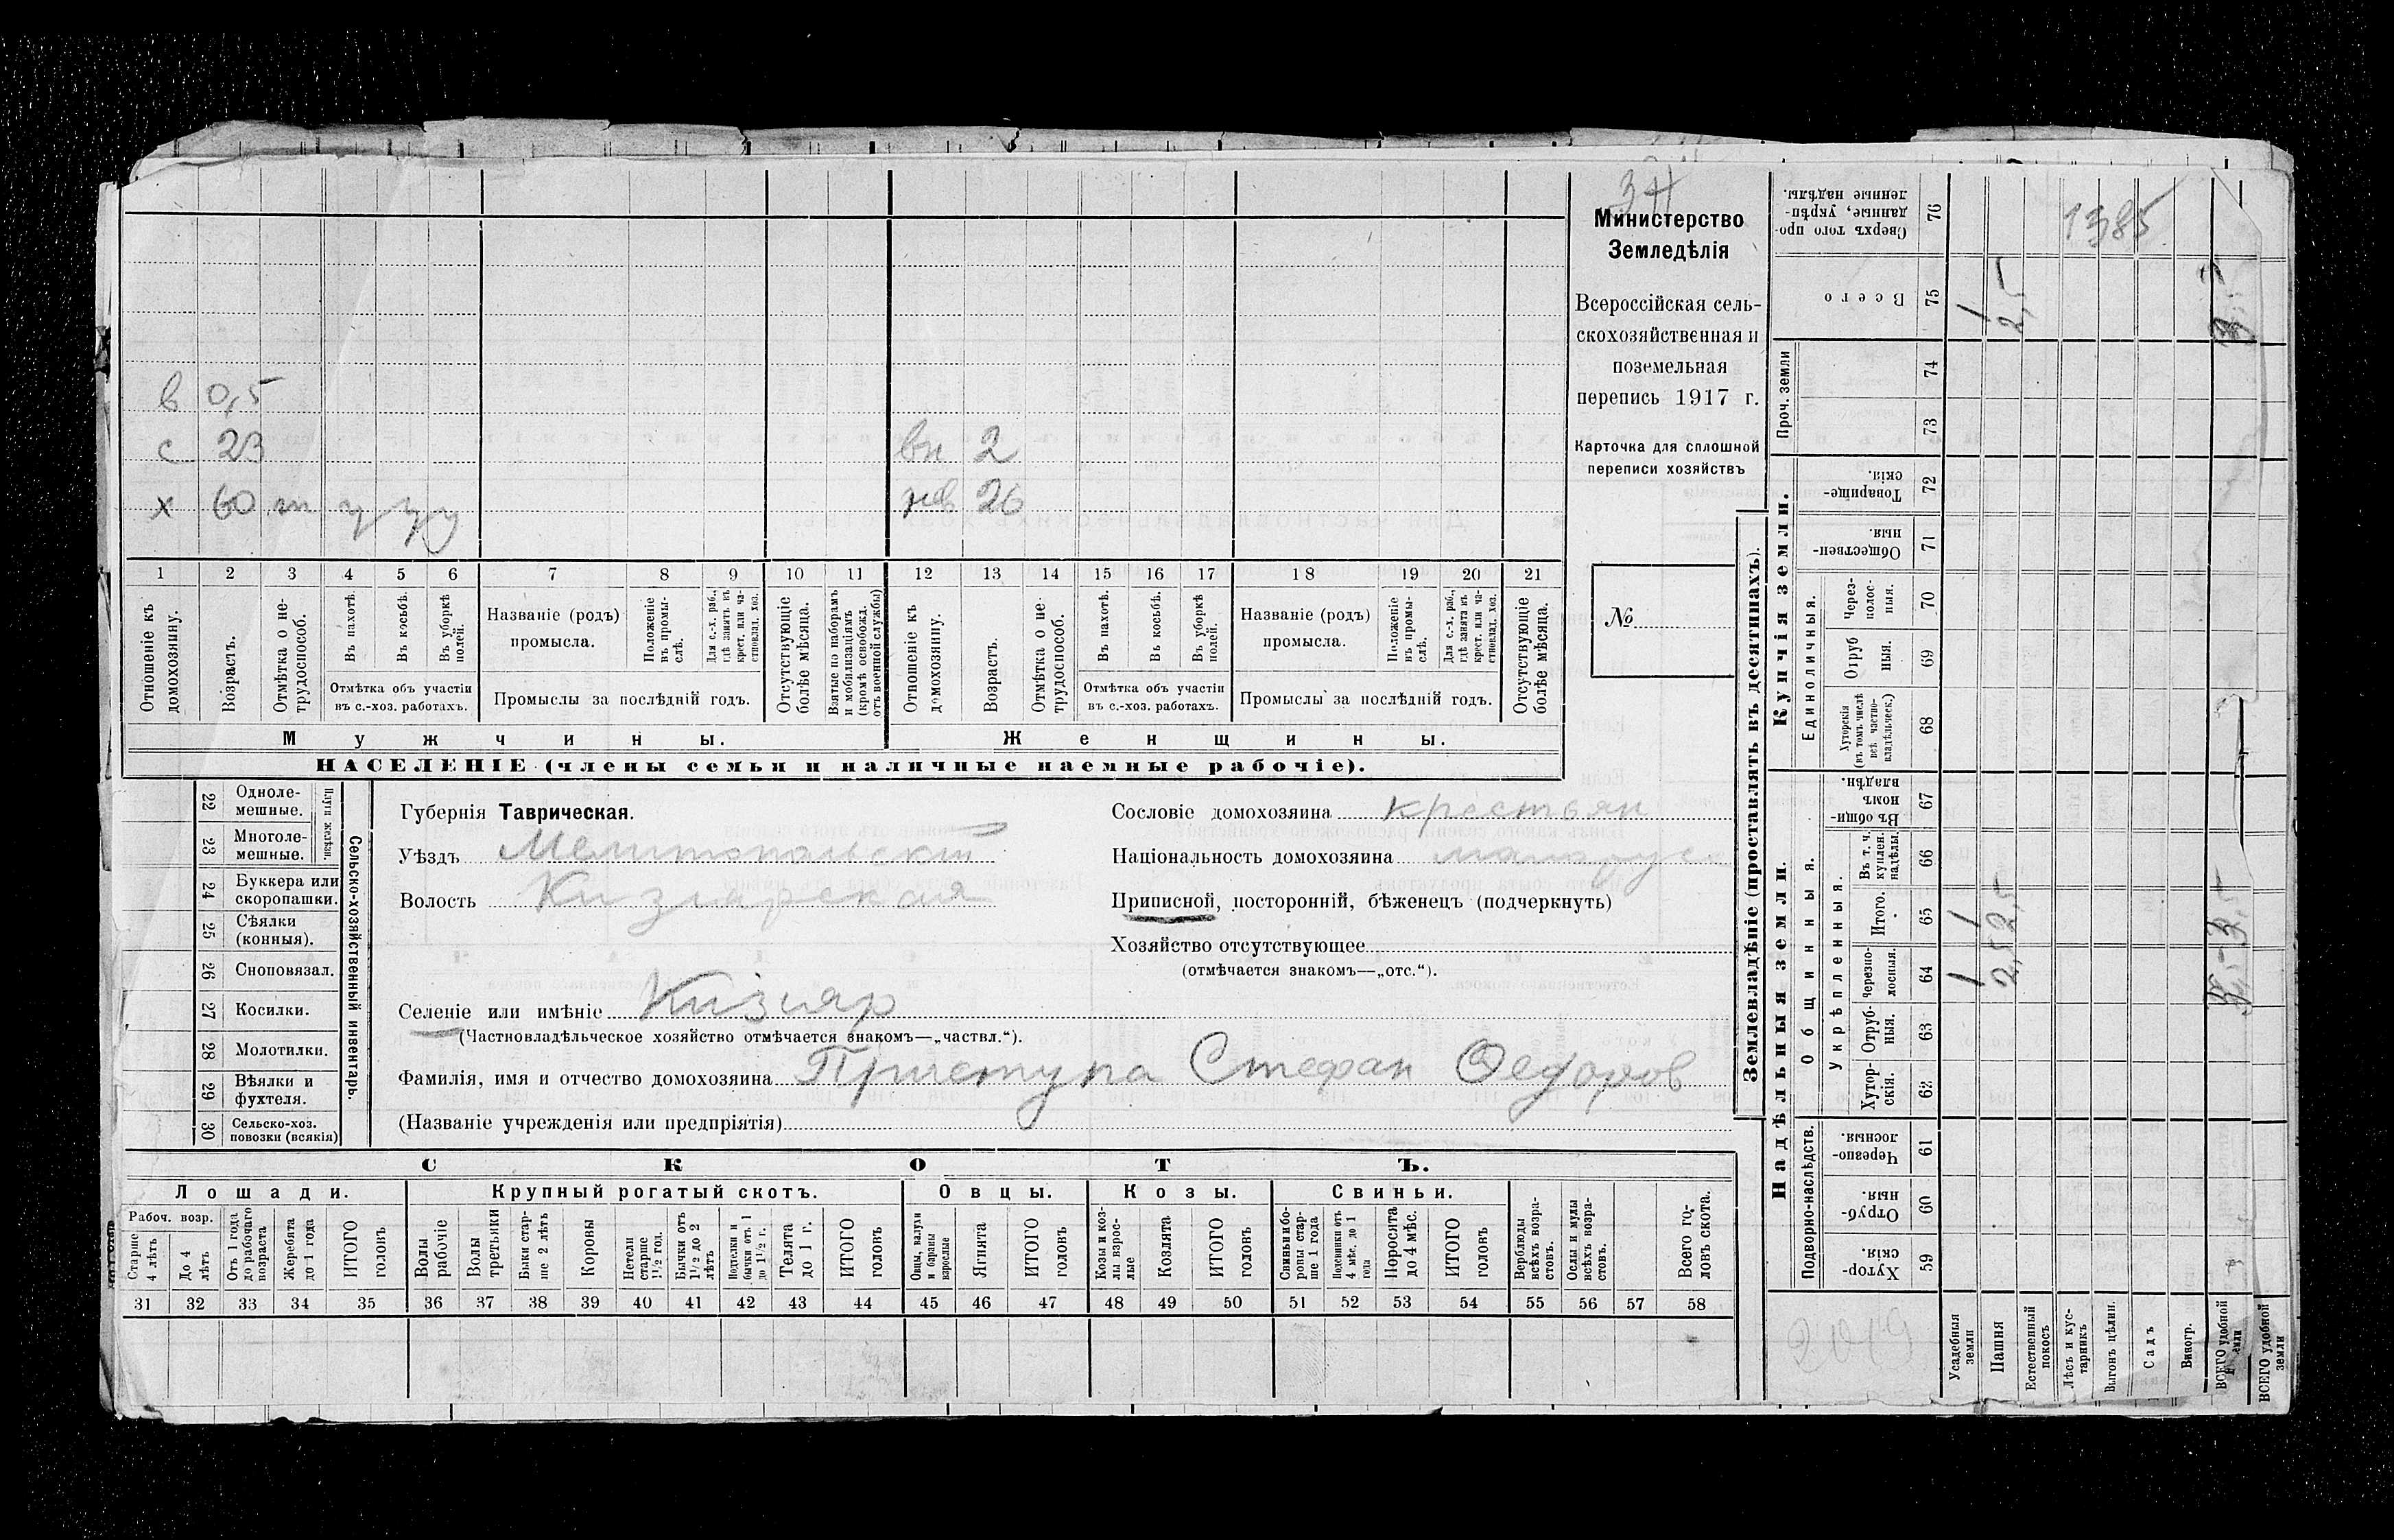 34
Министерство
Земледѣлія
Всероссійская сель-
скохозяйственная и
поземельная
перепись 1917 г.
Карточка для сплошной
переписи хозяйствъ
№
в 0,5
с 23
вн 2
х 60 т у у у
нев 26
1 2 3 4 5 6 7 8 9 10 11 12 13 14 15 16 17 18 19 20 21
Отношеніе къ домохозяину.
Возрастъ.
Отмѣтка о не-трудоспособ.
Въ пахотѣ.
Въ косьбѣ.
Въ уборкѣ полей.
Отмѣтка объ участіи
въ с.-хоз. работахъ.
Названіе (родъ)
промысла.
Положеніе въ промы-слѣ.
Для с.-х. раб., гдѣ занятъ къ крест. или ча-стновлад. хоз.
Промыслы за послѣдній годъ.
Отсутствующіе болѣе мѣсяца.
Взятые по наборамъ и мобилизаціямъ (кромѣ освобожд. отъ военной службы)
Отношеніе къ домохозяину.
Возрастъ.
Отмѣтка о не трудоспособ.
Въ пахотѣ.
Въ косьбѣ.
Въ уборкѣ полей.
Отмѣтка объ участіи
въ с.-хоз. работахъ.
Названіе (родъ)
промысла.
Положеніе въ промы-слѣ.
Для с.-х. раб., гдѣ занята къ крест. или ча-стновлад. хоз.
Промыслы за послѣдній годъ.
Отсутствующіе болѣе мѣсяца.
Мужчины.
Женщины.
НАСЕЛЕНІЕ (члены семьи и наличные наемные рабочіе).
22 Одноле-мешные.
23 Многоле-мешные.
Плуги желѣзн.
24 Буккера или скоропашки.
25 Сѣялки (конныя).
26 Сноповязал.
27 Косилки.
28 Молотилки.
29 Вѣялки и фухтеля.
30 Сельско-хоз. повозки (всякія)
Сельско-хозяйственный инвентарь.
Губернія Таврическая.
Уѣздъ Мелитопольскій
Волость Кизиярская
Сословіе домохозяина крестьян
Національность домохозяина малорус
Приписной, посторонній, бѣженецъ (подчеркнуть)
Хозяйство отсутствующее
(отмѣчается знакомъ—„отс.“).
Селеніе или имѣніе Кизияр
(Частновладѣльческое хозяйство отмѣчается знакомъ—„частвл.“).
Фамилія, имя и отчество домохозяина Приступа Стефан Федоров
(Названіе учрежденія или предпріятія)
СКОТЪ.
Лошади.
Крупный рогатый скотъ.
Овцы.
Козы.
Свиньи.
Рабоч. возр.
Старше 4 лѣтъ
До 4 лѣтъ
Отъ 1 года до рабочаго возраста
Жеребята до 1 года
ИТОГО головъ
Волы рабочіе
Волы третьяки
Быки стар-ше 2 лѣтъ
Коровы
Нетели старше 1½ гол.
Бычки отъ 1½ до 2 лѣтъ
Подтелки и бычки отъ 1 до 1½ г.
Телята до 1 г.
ИТОГО головъ
Овцы, валухи и бараны взрослые
Ягнята
ИТОГО головъ
Козы и коз-лы взрос-лые
Козлята
ИТОГО головъ
Свиньи и бо-ровы стар-ше 1 года
Подсвинки отъ 4 мѣс. до 1 года
Поросята до 4 мѣс.
ИТОГО головъ
Верблюды всѣхъ возра-стовъ.
Ослы и мулы всѣхъ возра-стовъ.
Всего го-ловъ скота.
31 32 33 34 35 36 37 38 39 40 41 42 43 44 45 46 47 48 49 50 51 52 53 54 55 56 57 58
Землевладѣніе (проставлять въ десятинахъ).
Купчія земли.
Надѣльныя земли.
Сверхъ того про-данные, укрѣп-ленные надѣлы. 76
1385
Всего 75
1 2,5 3,5
Проч. земли
74
73
Товарище-скія. 72
Обществен-ныя. 71
Единоличныя.
Через-полос-ныя. 70
Отруб ныя. 69
Хуторскія (въ томъ числѣ всѣ частно-владѣльческ.) 68
Общинныя.
Въ общи-номъ владѣн. 67
Укрѣпленныя.
Въ т. ч. куплен. надѣлы. 66
Итого. 65
1 2,5 3,5
Черезпо-лосныя. 64
1 2,5 3,5
Отруб-ныя. 63
Хутор-скія. 62
Подворно-наслѣдств.
Черезпо-лосныя. 61
Отруб-ныя. 60
Хутор-скія. 59
2019
Усадебныя земли
Пашня
Естественный покосъ
Лѣсъ и кус-тарникъ
Выгонъ цѣлин.
Садъ
Виногр.
ВСЕГО удобной земли
ВСЕГО удобной земли